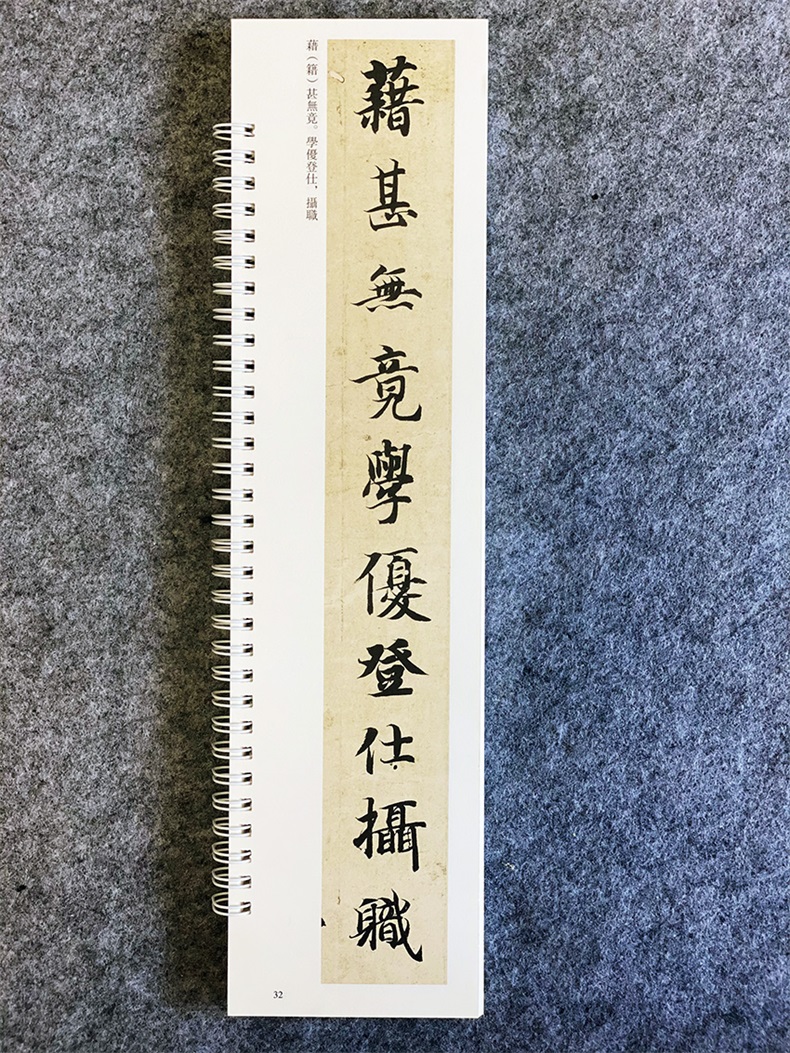 藉甚無竟學優登仕攝職
藉（籍）甚無竟。學優登仕，攝職
32